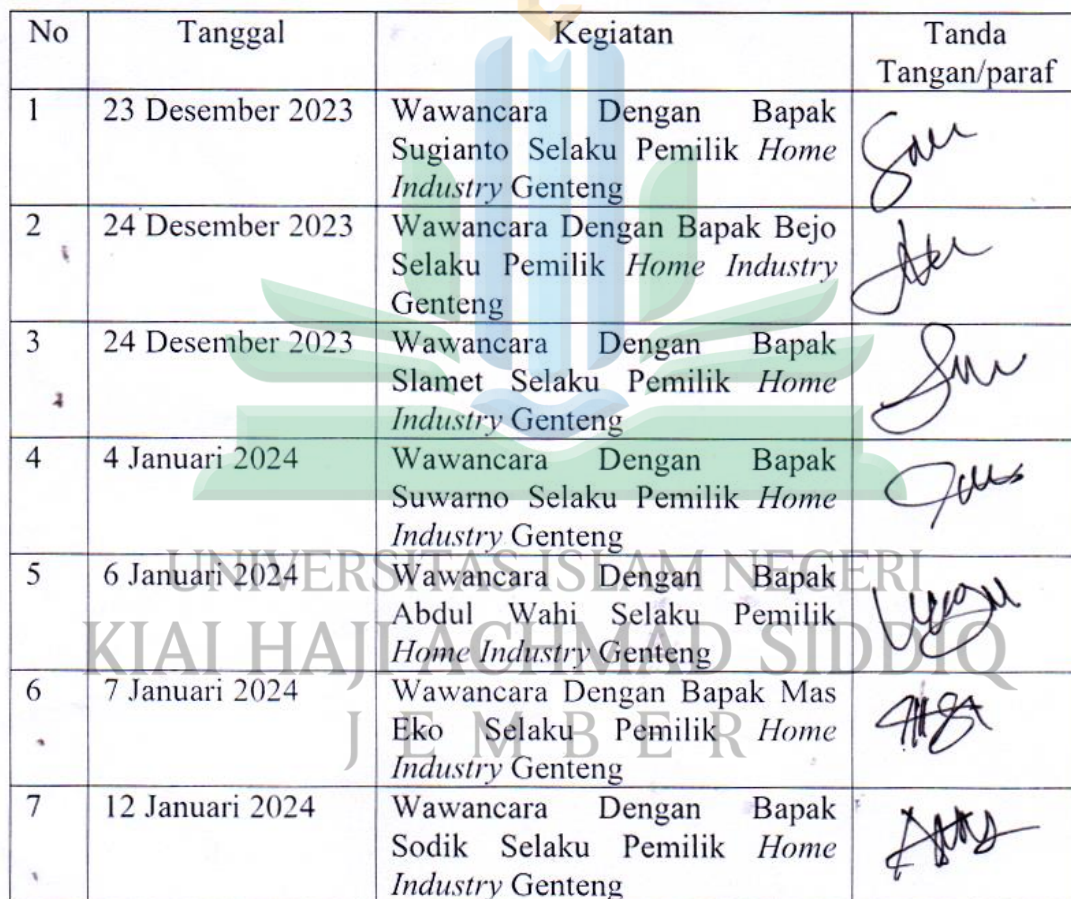 No Tanggal Kegiatan Tanda
Tangan/paraf
1 23 Desember 2023 Wawancara Dengan Bapak
Sugianto Selaku Pemilik Home
Industry Genteng
2 24 Desember 2023 Wawancara Dengan Bapak Bejo
Selaku Pemilik Home Industry
Genteng
3 24 Desember 2023 Wawancara Dengan Bapak
Slamet Selaku Pemilik Home
Industry Genteng
4 4 Januari 2024 Wawancara Dengan Bapak
Suwarno Selaku Pemilik Home
Industry Genteng
5 6 Januari 2024 Wawancara Dengan Bapak
Abdul Wahi Selaku Pemilik
Home Industry Genteng
6 7 Januari 2024 Wawancara Dengan Bapak Mas
Eko Selaku Pemilik Home
Industry Genteng
7 12 Januari 2024 Wawancara Dengan Bapak
Sodik Selaku Pemilik Home
Industry Genteng
UNIVERSITAS ISLAM NEGERI
KIAI HAJI ACHMAD SIDDIQ
JEMBER